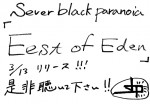 Sever black paranoia
「East of Eden」
3/13 リリース!!!
是非聴いて下さい!!